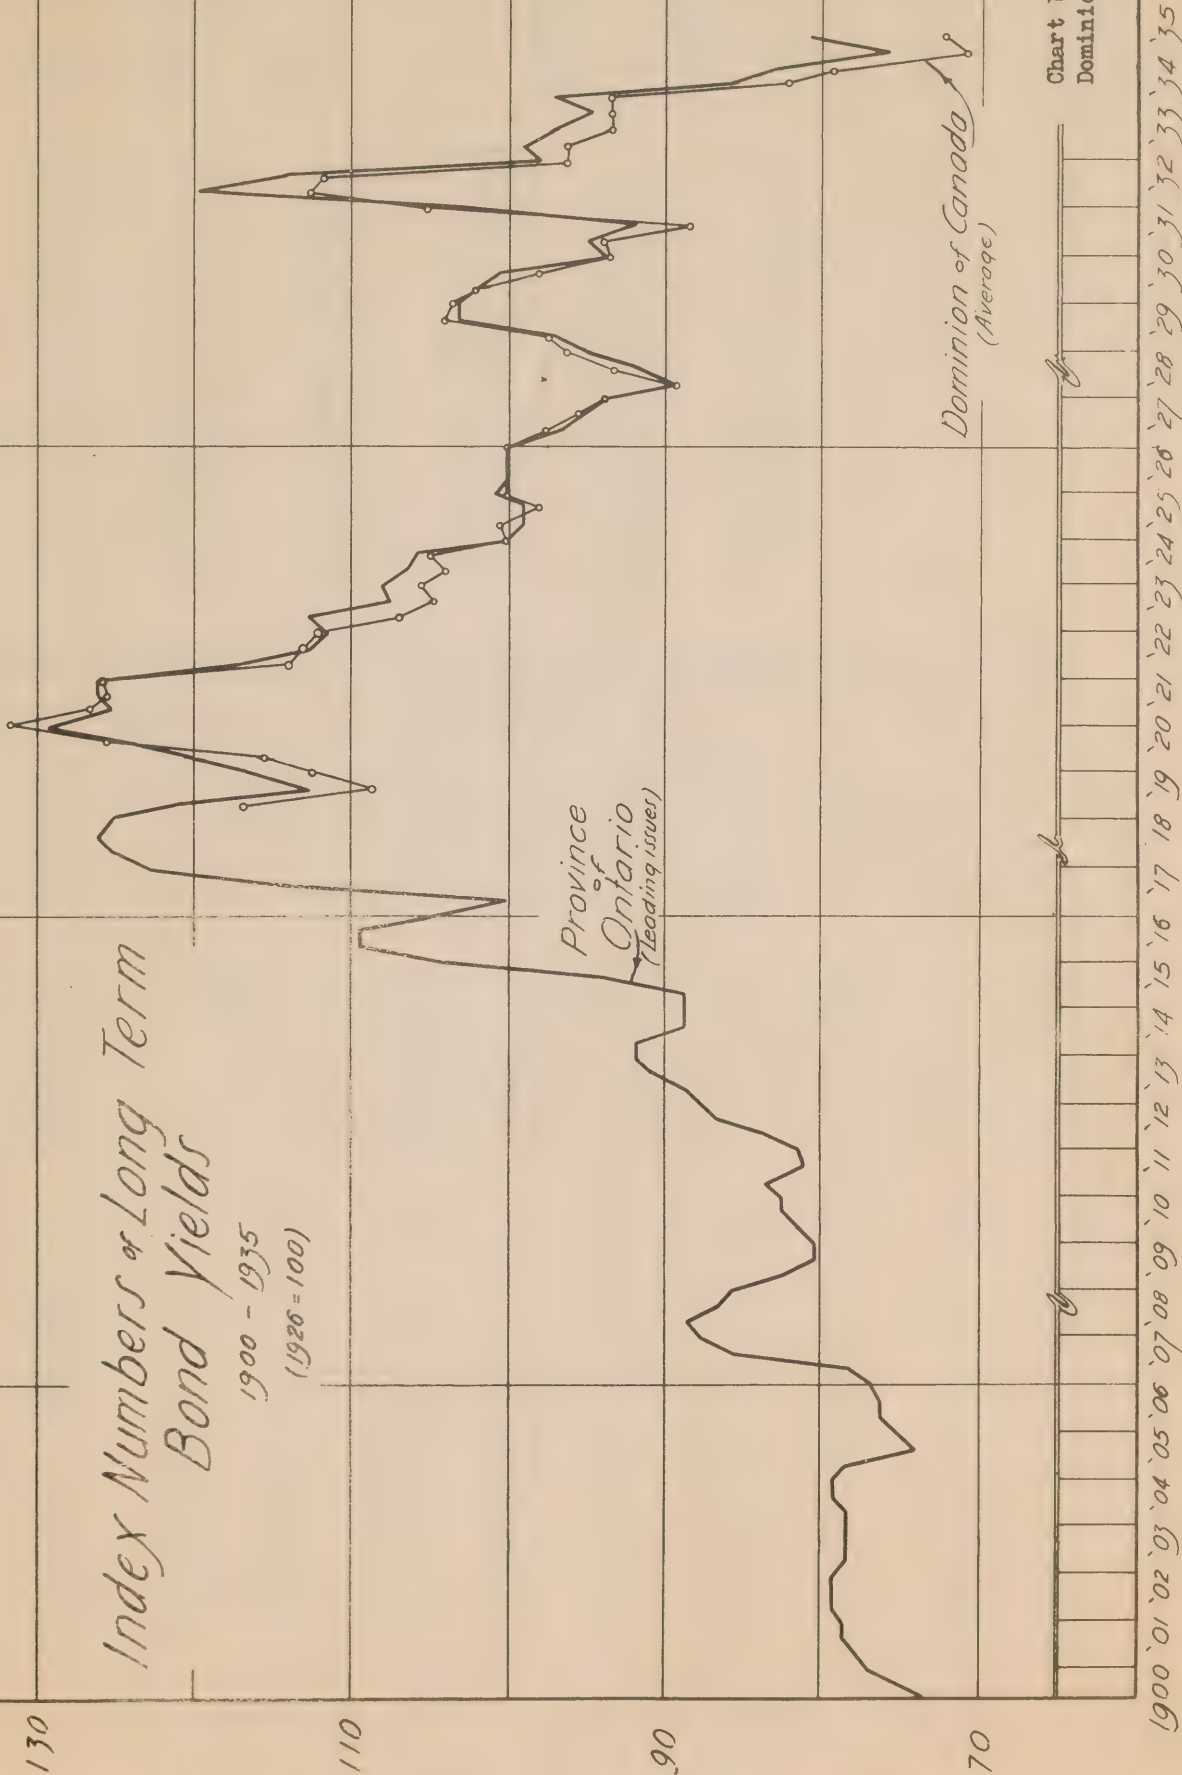 Index Numbers of Long Term
Bond Yields
1900 - 1935
(1926 = 100)
130
110
90
70
Province
of
Ontario
(Leading issues)
Dominion of Canada
(Average)
Chart
Dominic
1900 '01 '02 '03 '04 '05 '06 '07 '08 '09 '10 '11 '12 '13 '14 '15 '16 '17 '18 '19 '20 '21 '22 '23 '24 '25 '26 '27 '28 '29 '30 '31 '32 '33 '34 '35